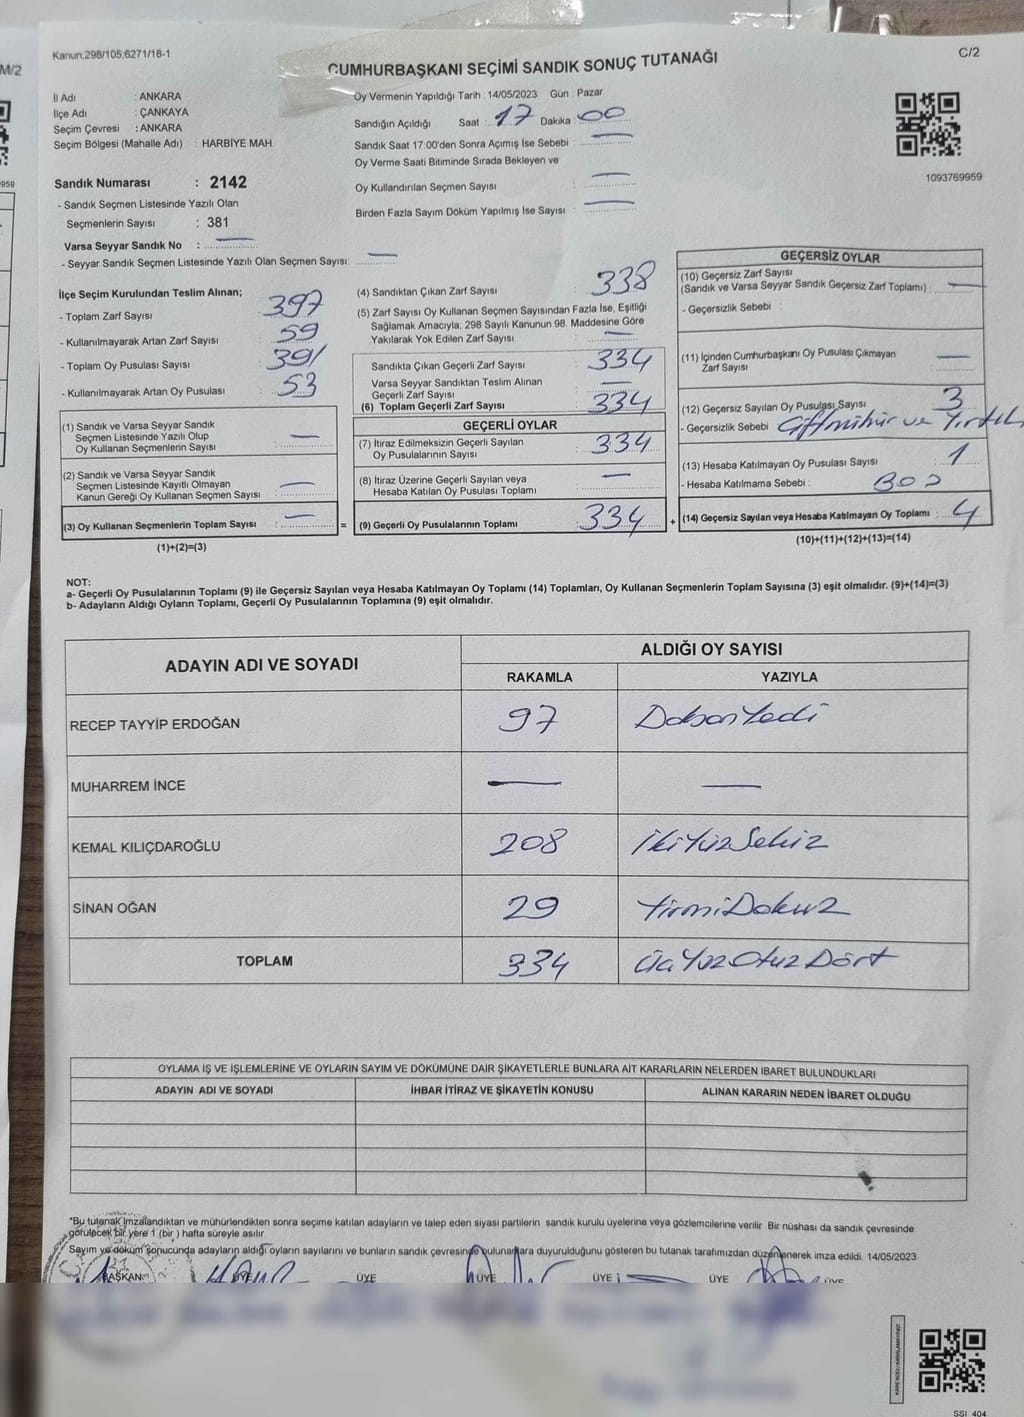 Kanun;298/105;6271/18-1
C/2
M/2
CUMHURBAŞKANI SEÇİMİ SANDIK SONUÇ TUTANAĞI
İl Adı : ANKARA
İlçe Adı : ÇANKAYA
Seçim Çevresi : ANKARA
Seçim Bölgesi (Mahalle Adı) : HARBİYE MAH.
Oy Vermenin Yapıldığı Tarih : 14/05/2023 Gün : Pazar
Sandığın Açıldığı Saat : 17 Dakika : 00
Sandık Saat 17:00'den Sonra Açımış İse Sebebi : —
Oy Verme Saati Bitiminde Sırada Bekleyen ve
Oy Kullandırılan Seçmen Sayısı : —
Birden Fazla Sayım Döküm Yapılmış İse Sayısı : —
1093769959
959
Sandık Numarası : 2142
- Sandık Seçmen Listesinde Yazılı Olan
Seçmenlerin Sayısı : 381
Varsa Seyyar Sandık No : —
- Seyyar Sandık Seçmen Listesinde Yazılı Olan Seçmen Sayısı: —
İlçe Seçim Kurulundan Teslim Alınan;
- Toplam Zarf Sayısı : 397
- Kullanılmayarak Artan Zarf Sayısı : 59
- Toplam Oy Pusulası Sayısı : 391
- Kullanılmayarak Artan Oy Pusulası : 53
(1) Sandık ve Varsa Seyyar Sandık
Seçmen Listesinde Yazılı Olup
Oy Kullanan Seçmenlerin Sayısı : —
(2) Sandık ve Varsa Seyyar Sandık
Seçmen Listesinde Kayıtlı Olmayan
Kanun Gereği Oy Kullanan Seçmen Sayısı : —
(3) Oy Kullanan Seçmenlerin Toplam Sayısı : — =
(1)+(2)=(3)
(4) Sandıktan Çıkan Zarf Sayısı : 338
(5) Zarf Sayısı Oy Kullanan Seçmen Sayısından Fazla İse, Eşitliği
Sağlamak Amacıyla; 298 Sayılı Kanunun 98. Maddesine Göre
Yakılarak Yok Edilen Zarf Sayısı : —
Sandıkta Çıkan Geçerli Zarf Sayısı : 334
Varsa Seyyar Sandıktan Teslim Alınan
Geçerli Zarf Sayısı : —
(6) Toplam Geçerli Zarf Sayısı : 334
GEÇERLİ OYLAR
(7) İtiraz Edilmeksizin Geçerli Sayılan
Oy Pusulalarının Sayısı : 334
(8) İtiraz Üzerine Geçerli Sayılan veya
Hesaba Katılan Oy Pusulası Toplamı : —
(9) Geçerli Oy Pusulalarının Toplamı : 334 +
GEÇERSİZ OYLAR
(10) Geçersiz Zarf Sayısı
(Sandık ve Varsa Seyyar Sandık Geçersiz Zarf Toplamı) : —
- Geçersizlik Sebebi :
(11) İçinden Cumhurbaşkanı Oy Pusulası Çıkmayan
Zarf Sayısı : —
(12) Geçersiz Sayılan Oy Pusulası Sayısı : 3
- Geçersizlik Sebebi : Çiftmühür ve Yırtık
(13) Hesaba Katılmayan Oy Pusulası Sayısı : 1
- Hesaba Katılmama Sebebi :
(14) Geçersiz Sayılan veya Hesaba Katılmayan Oy Toplamı : 4
(10)+(11)+(12)+(13)=(14)
NOT:
a- Geçerli Oy Pusulalarının Toplamı (9) ile Geçersiz Sayılan veya Hesaba Katılmayan Oy Toplamı (14) Toplamları, Oy Kullanan Seçmenlerin Toplam Sayısına (3) eşit olmalıdır. (9)+(14)=(3)
b- Adayların Aldığı Oyların Toplamı, Geçerli Oy Pusulalarının Toplamına (9) eşit olmalıdır.
ADAYIN ADI VE SOYADI
ALDIĞI OY SAYISI
RAKAMLA YAZIYLA
RECEP TAYYİP ERDOĞAN 97 DoksanYedi
MUHARREM İNCE — —
KEMAL KILIÇDAROĞLU 208 İkiYüzSekiz
SİNAN OĞAN 29 YirmiDokuz
TOPLAM 334 ÜçYüzOtuzDört
OYLAMA İŞ VE İŞLEMLERİNE VE OYLARIN SAYIM VE DÖKÜMÜNE DAİR ŞİKAYETLERLE BUNLARA AİT KARARLARIN NELERDEN İBARET BULUNDUKLARI
ADAYIN ADI VE SOYADI İHBAR İTİRAZ VE ŞİKAYETİN KONUSU ALINAN KARARIN NEDEN İBARET OLDUĞU
*Bu tutanak imzalandıktan ve mühürlendikten sonra seçime katılan adayların ve talep eden siyasi partilerin sandık kurulu üyelerine veya gözlemcilerine verilir. Bir nüshası da sandık çevresinde
görülecek bir yere 1 (bir) hafta süreyle asılır.
Sayım ve döküm sonucunda adayların aldığı oyların sayılarını ve bunların sandık çevresinde bulunanlara duyurulduğunu gösteren bu tutanak tarafımızdan düzenlenerek imza edildi. 14/05/2023
BAŞKAN ÜYE ÜYE ÜYE ÜYE ÜYE ÜYE
SSI 404